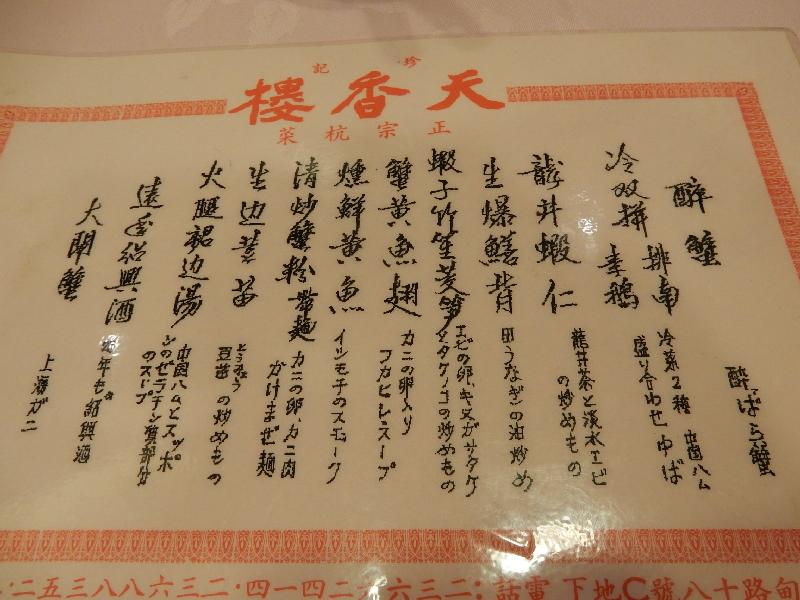 珍記
天香樓
正宗杭菜
醉蟹
酔っぱら蟹
冷双拼 排南
素鵝
冷菜2種 中国ハム
盛り合わせ ゆば
龍井蝦仁
龍井茶と淡水エビ
の炒めもの
生爆鱔背
田うなぎの油炒め
蝦子竹笙茭笋
エビの卵、キヌガサタケ
とタケノコの炒めもの
蟹黄魚翅
カニの卵入り
フカヒレスープ
燻鮮黄魚
イシモチのスモーク
清炒蟹粉帶麺
カニの卵、カニ肉
かけまぜ麺
生边荳苗
とうみょう
豆苗の炒めもの
火腿裙边湯
中国ハムとスッポ
ンのゼラチン質部分
のスープ
遠年紹興酒
年もの紹興酒
大閘蟹
上海ガニ
甸路十八號C地下 電話：二三六六二四一四·二三六八八三五二·